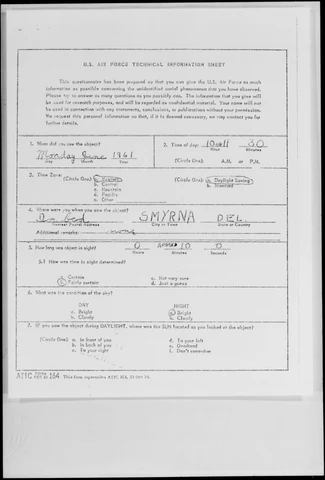 U.S. AIR FORCE TECHNICAL INFORMATION SHEET
This questionnaire has been prepared so that you can give the U.S. Air Force as much
information as possible concerning the unidentified aerial phenomenon that you have observed.
Please try to answer as many questions as you possibly can. The information that you give will
be used for research purposes, and will be regarded as confidential material. Your name will not
be used in connection with any statements, conclusions, or publications without your permission.
We request this personal information so that, if it is deemed necessary, we may contact you for
further details.
1. When did you see the object?
Monday June 1961
Day Month Year
2. Time of day: 10 30
Hour Minutes
(Circle One): A.M. or P.M.
3. Time Zone:
(Circle One): a. Eastern
b. Central
c. Mountain
d. Pacific
e. Other
(Circle One): a. Daylight Saving
b. Standard
4. Where were you when you saw the object?
In bed SMYRNA DEL
Nearest Postal Address City or Town State or Country
Additional remarks:
5. How long was object in sight? 0 10 0
Hours Minutes Seconds
5.1 How was time in sight determined?
a. Certain c. Not very sure
b. Fairly certain d. Just a guess
6. What was the condition of the sky?
DAY NIGHT
a. Bright a. Bright
b. Cloudy b. Cloudy
7. IF you saw the object during DAYLIGHT, where was the SUN located as you looked at the object?
(Circle One): a. In front of you d. To your left
b. In back of you e. Overhead
c. To your right f. Don't remember
ATIC FORM 164 This form supersedes